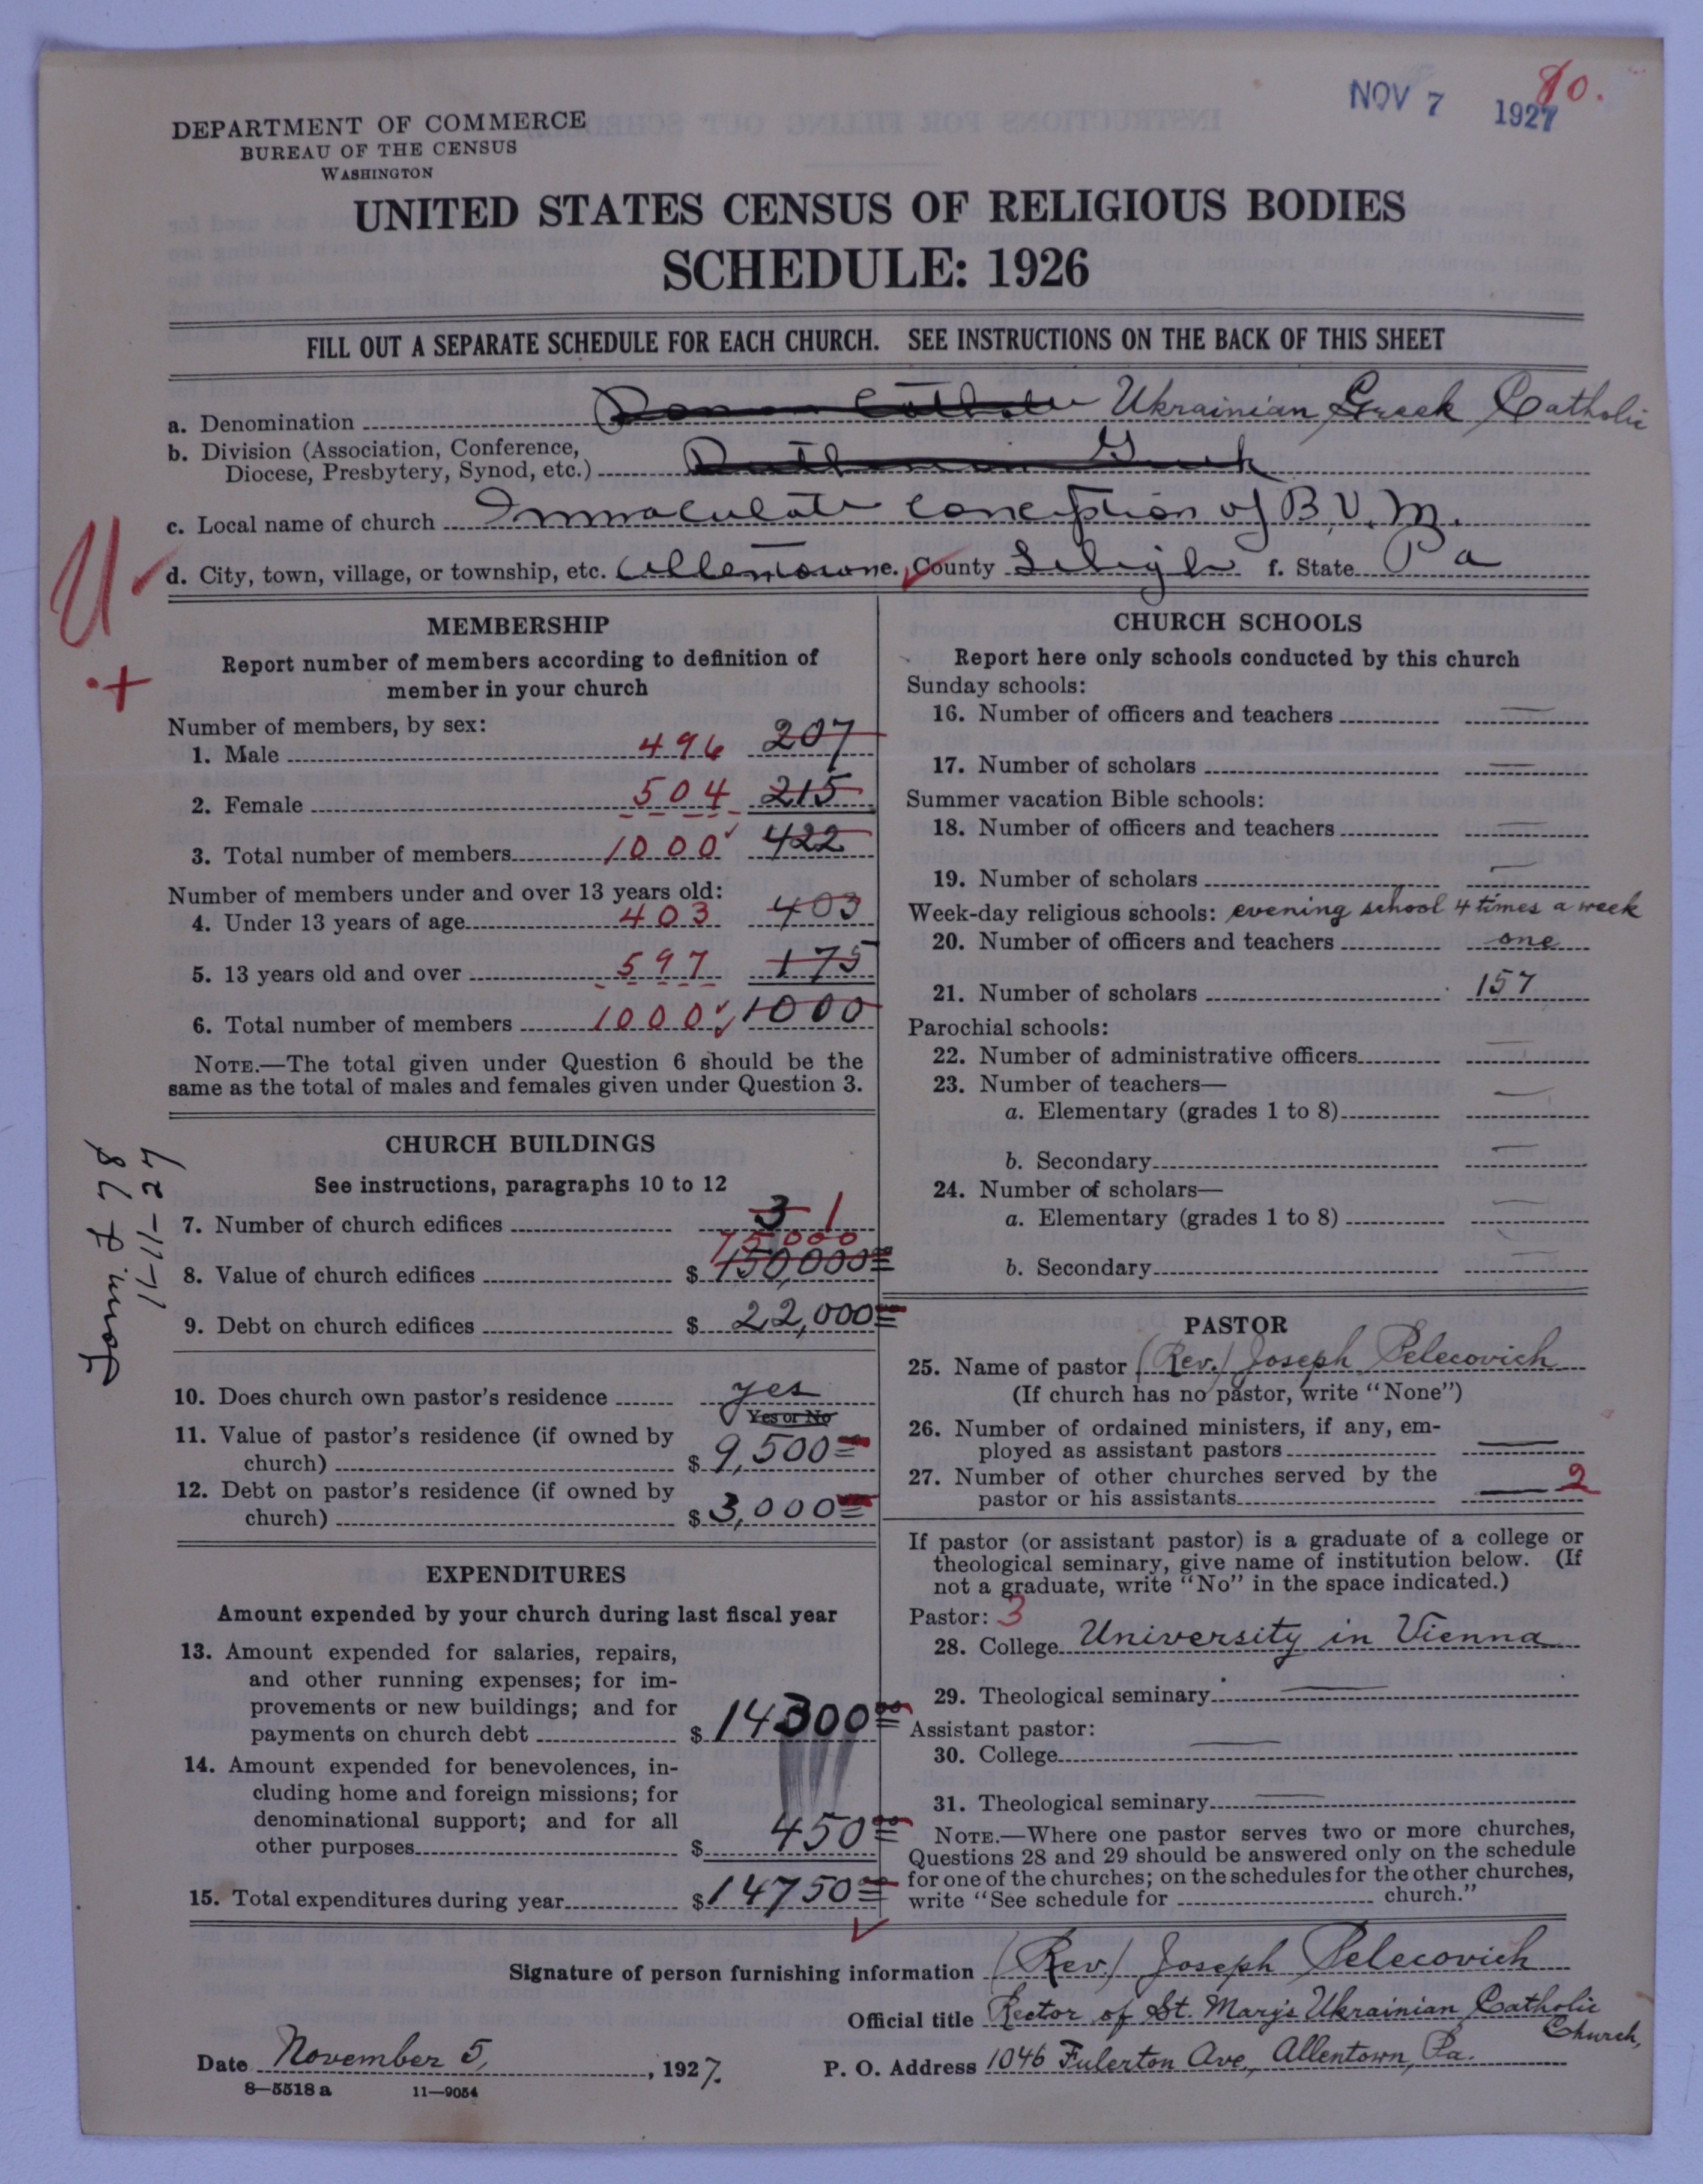 NOV 7 1927
80.
DEPARTMENT OF COMMERCE
BUREAU OF THE CENSUS
WASHINGTON
UNITED STATES CENSUS OF RELIGIOUS BODIES
SCHEDULE: 1926
FILL OUT A SEPARATE SCHEDULE FOR EACH CHURCH. SEE INSTRUCTIONS ON THE BACK OF THIS SHEET
a. Denomination Roman Catholic Ukrainian Greek Catholic
b. Division (Association, Conference,
Diocese, Presbytery, Synod, etc.) Ruthenian Greek
c. Local name of church Immaculate Conception of B.V.M.
d. City, town, village, or township, etc. Allentown e. County Lehigh f. State Pa
U
+
MEMBERSHIP
Report number of members according to definition of
member in your church
Number of members, by sex:
1. Male 496 207
2. Female 504 215
3. Total number of members 1000 422
Number of members under and over 13 years old:
4. Under 13 years of age 403 403
5. 13 years old and over 597 175
6. Total number of members 1000 1000
NOTE.—The total given under Question 6 should be the
same as the total of males and females given under Question 3.
CHURCH BUILDINGS
See instructions, paragraphs 10 to 12
7. Number of church edifices 3 1
75000
8. Value of church edifices $ 150,000
9. Debt on church edifices $ 22,000
10. Does church own pastor's residence yes
Yes or No
11. Value of pastor's residence (if owned by
church) $ 9,500
12. Debt on pastor's residence (if owned by
church) $ 3,000
EXPENDITURES
Amount expended by your church during last fiscal year
13. Amount expended for salaries, repairs,
and other running expenses; for im-
provements or new buildings; and for
payments on church debt $ 14300 00
14. Amount expended for benevolences, in-
cluding home and foreign missions; for
denominational support; and for all
other purposes $ 450 00
15. Total expenditures during year $ 14750
CHURCH SCHOOLS
Report here only schools conducted by this church
Sunday schools:
16. Number of officers and teachers —
17. Number of scholars —
Summer vacation Bible schools:
18. Number of officers and teachers —
19. Number of scholars —
Week-day religious schools: evening school 4 times a week
20. Number of officers and teachers one
21. Number of scholars 157
Parochial schools:
22. Number of administrative officers —
23. Number of teachers—
a. Elementary (grades 1 to 8) —
b. Secondary —
24. Number of scholars—
a. Elementary (grades 1 to 8) —
b. Secondary —
PASTOR
25. Name of pastor (Rev.) Joseph Pelecovich
(If church has no pastor, write "None")
26. Number of ordained ministers, if any, em-
ployed as assistant pastors —
27. Number of other churches served by the
pastor or his assistants — 2
If pastor (or assistant pastor) is a graduate of a college or
theological seminary, give name of institution below. (If
not a graduate, write "No" in the space indicated.)
Pastor: 3
28. College University in Vienna
29. Theological seminary —
Assistant pastor:
30. College —
31. Theological seminary —
NOTE.—Where one pastor serves two or more churches,
Questions 28 and 29 should be answered only on the schedule
for one of the churches; on the schedules for the other churches,
write "See schedule for church."
Signature of person furnishing information (Rev.) Joseph Pelecovich
Official title Rector of St. Mary's Ukrainian Catholic
Church,
Date November 5, , 1927. P. O. Address 1046 Fulerton Ave, Allentown, Pa.
8—5518 a 11—9054
1-11-27